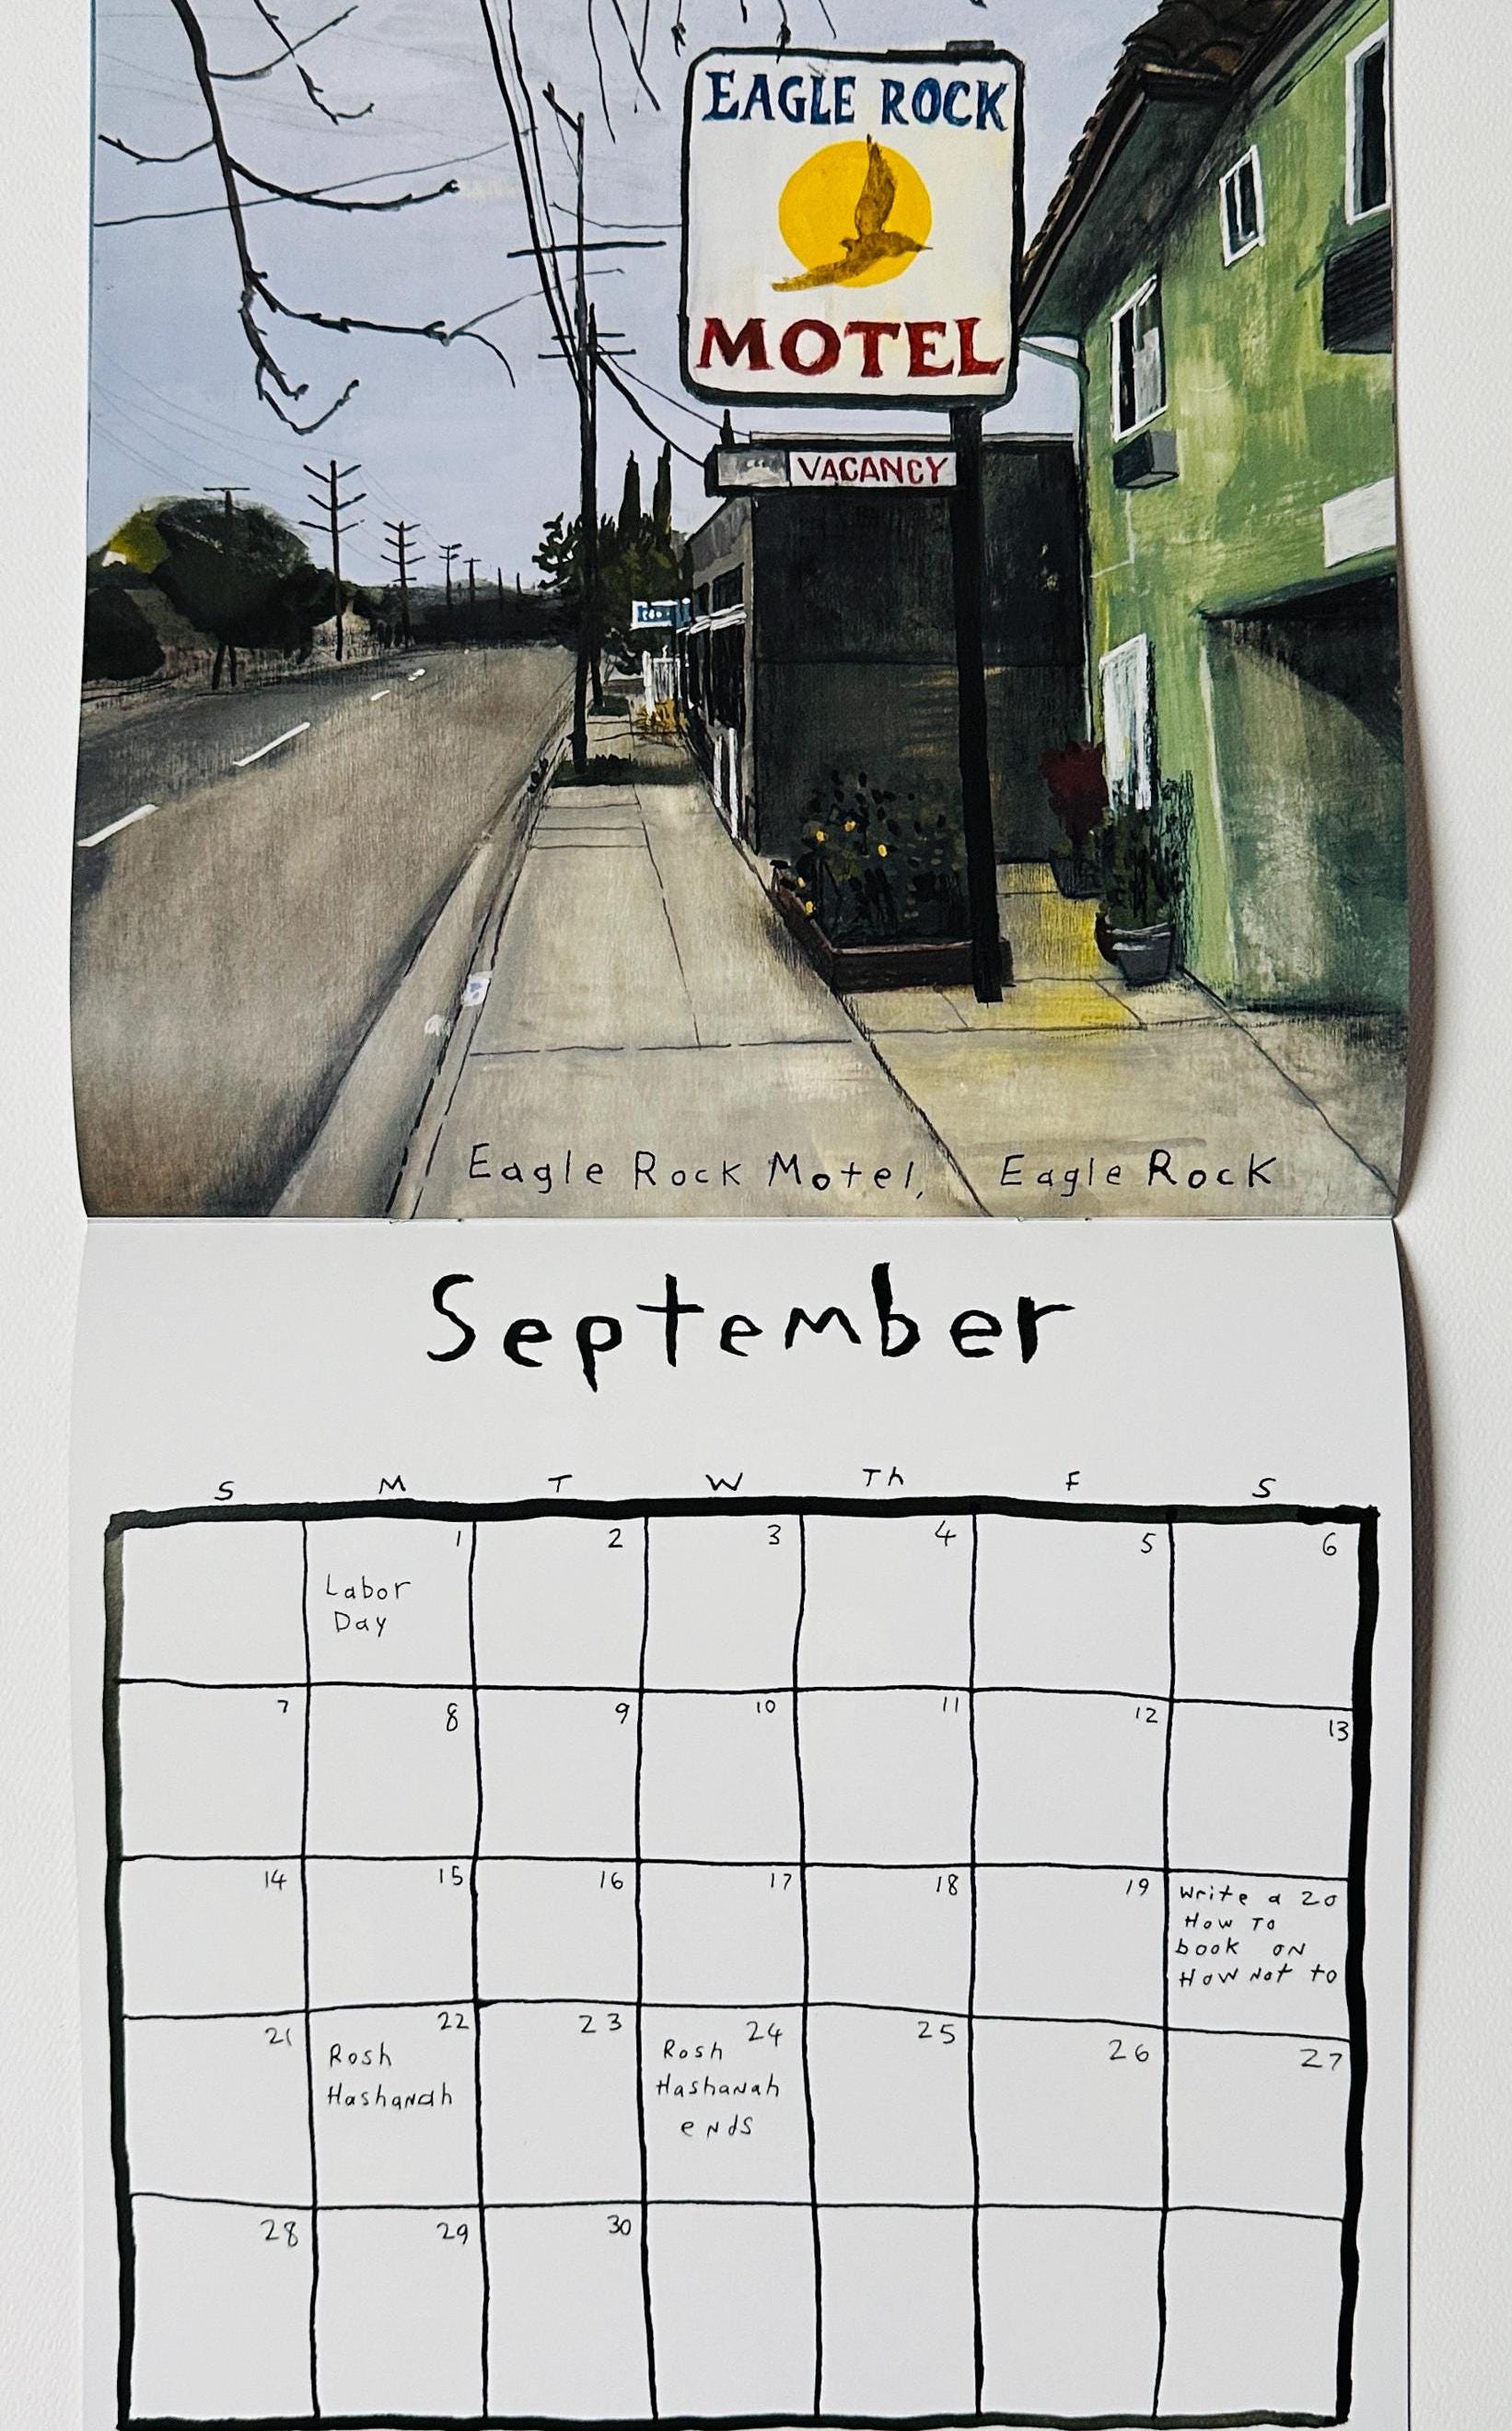 EAGLE ROCK
MOTEL
VACANCY
Eagle Rock Motel, Eagle Rock
September
S M T W Th F S
1 2 3 4 5 6
Labor
Day
7 8 9 10 11 12 13
14 15 16 17 18 19 20
Write a
How To
book on
How Not to
21 22 23 24 25 26 27
Rosh
Hashanah
Rosh
Hashanah
ends
28 29 30